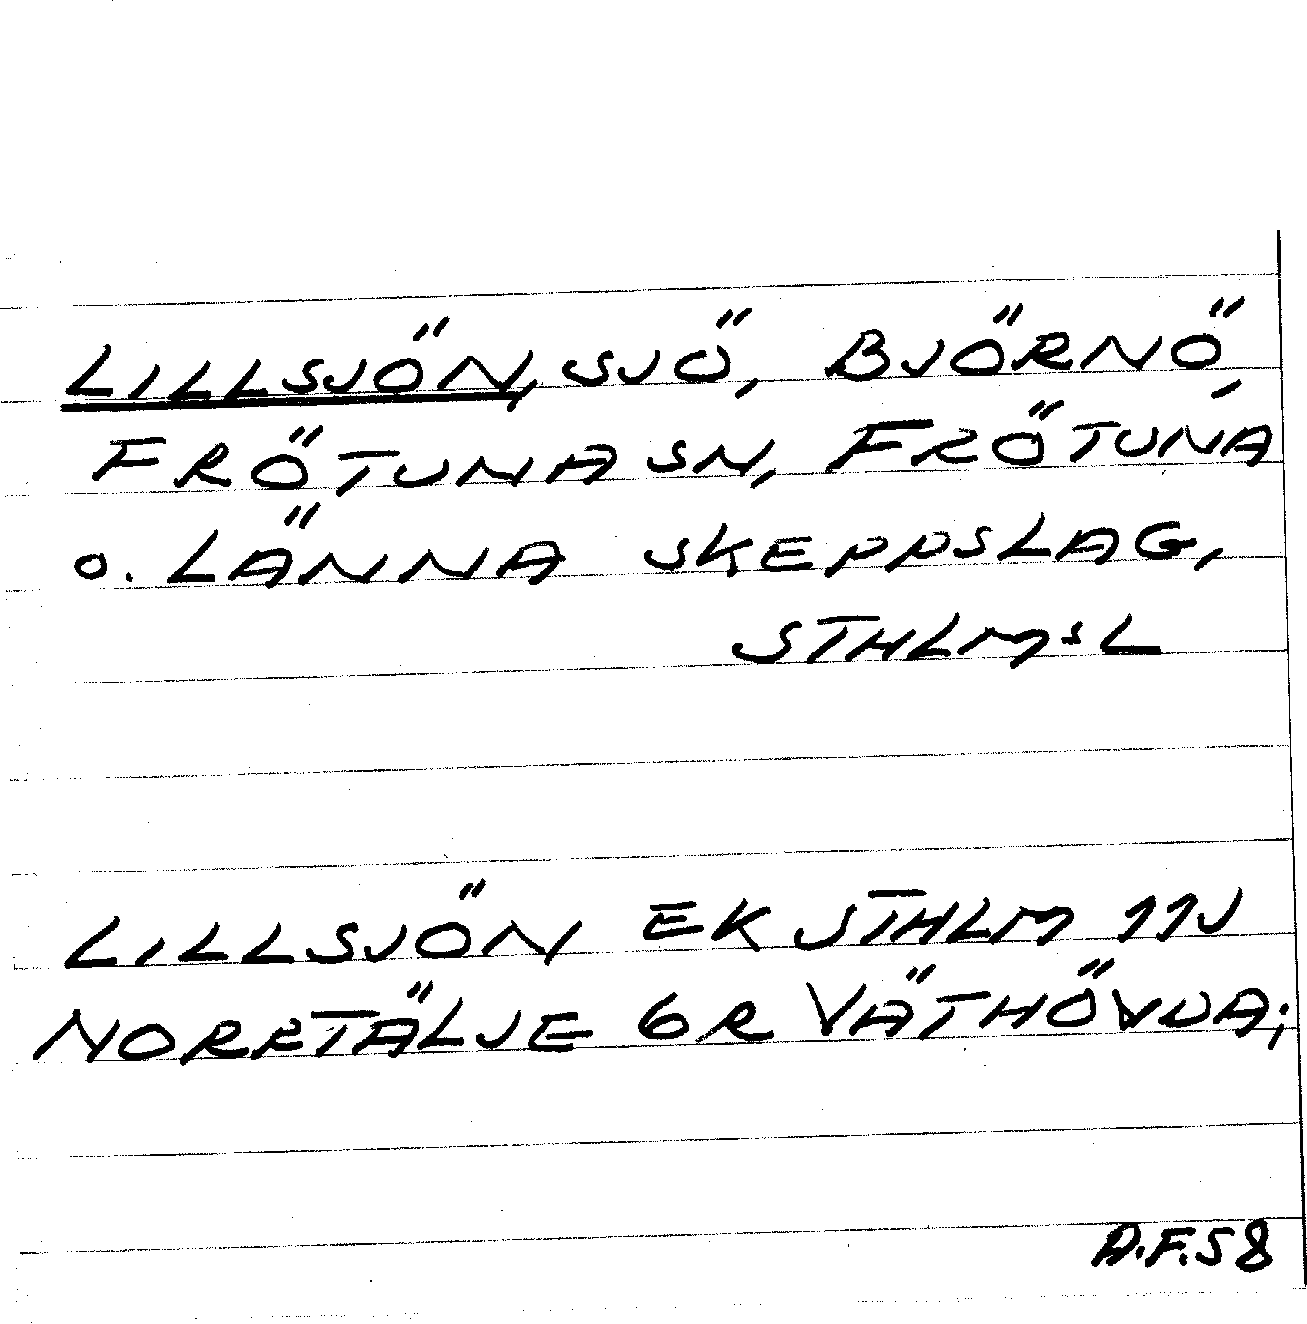 LILLSJÖN, SJÖ, BJÖRNÖ,
FRÖTUNA SN, FRÖTUNA
O. LÄNNA SKEPPSLAG,
STHLMSL
LILLSJÖN EK STHLM 11J
NORRTÄLJE 6R VÄTHÖVDA;
A.F.58